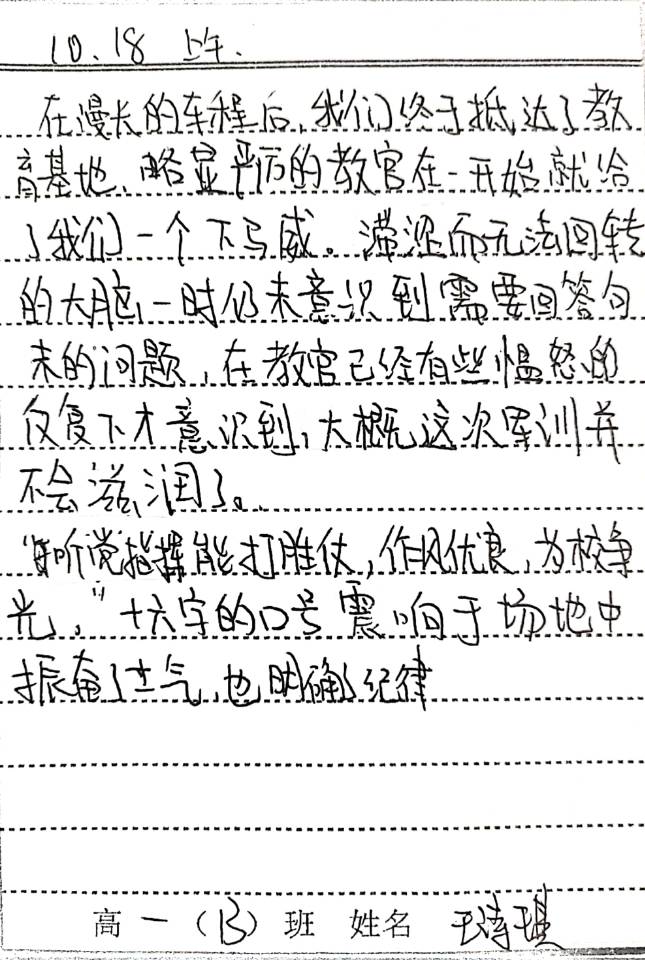 10.18 上午.
在漫长的车程后,我们终于抵达了教
育基地、略显严厉的教官在一开始就给
了我们一个下马威。滞涩而无法回转
的大脑一时仍未意识到需要回答句
末的问题,在教官已经有些愠怒的
反复下才意识到,大概这次军训并
不会滋润了。
"听党指挥能打胜仗,作风优良,为校争
光,"十六字的口号震响于场地中
振奋了士气,也明确了纪律
高一(13)班 姓名 王